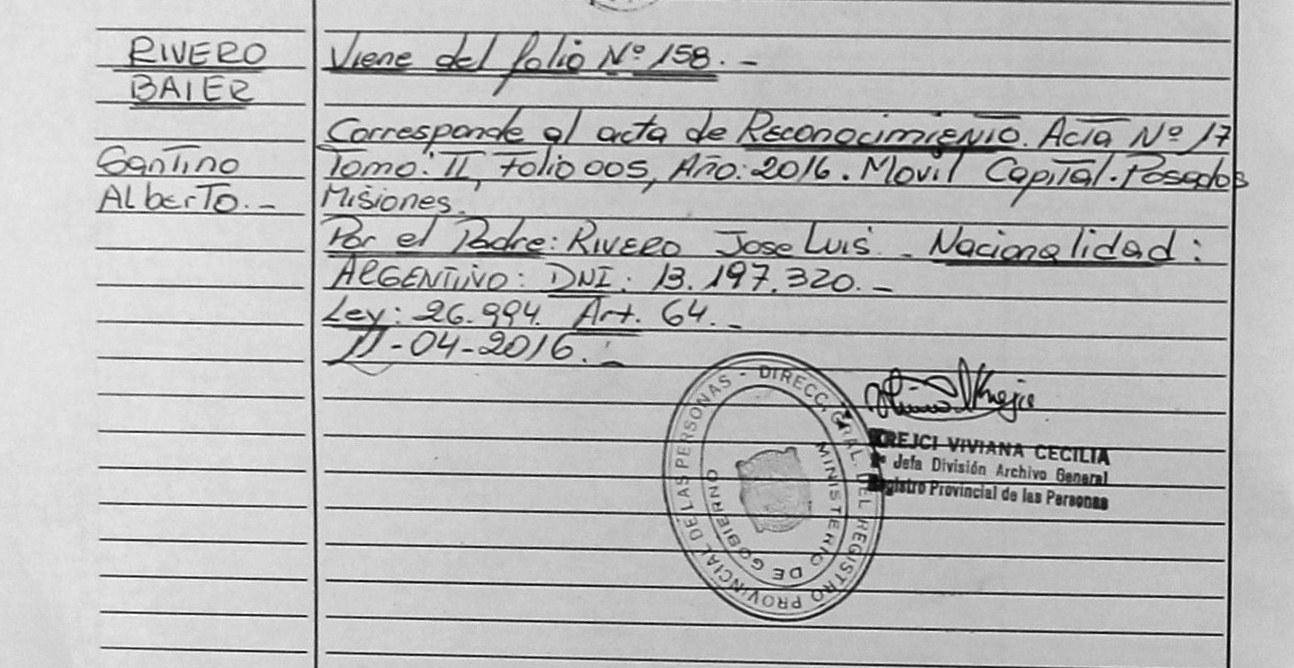 RIVERO
BAIER
Santino
Alberto.-
Viene del folio Nº 158.-
Corresponde al acta de Reconocimiento. Acta Nº 17
Tomo: II, Folio 005, Año: 2016. Movil Capital. Posadas
Misiones.
Por el Padre: RIVERO Jose Luis.- Nacionalidad:
ARGENTINO: DNI: 13.197.320.-
Ley: 26.994. Art. 64.-
11-04-2016.-
DIRECC. GRAL. DEL REGISTRO PROVINCIAL DE LAS PERSONAS -
MINISTERIO DE GOBIERNO
KREJCI VIVIANA CECILIA
Jefa División Archivo General
Registro Provincial de las Personas